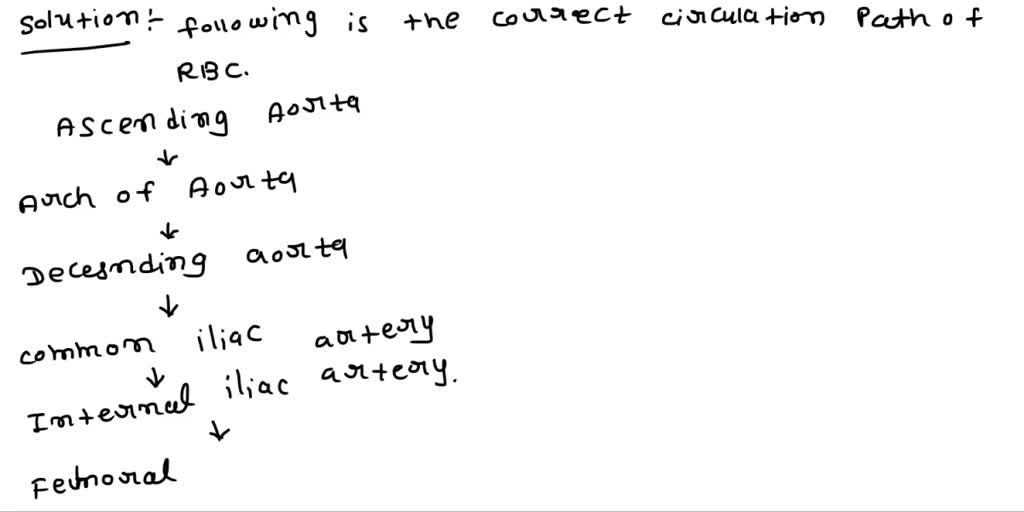 Solution :- following is the correct circulation Path of
RBC.
Ascending Aorta
↓
Arch of Aorta
↓
Decesnding aorta
↓
common iliac artery
↓
Internal iliac artery.
↓
Femoral